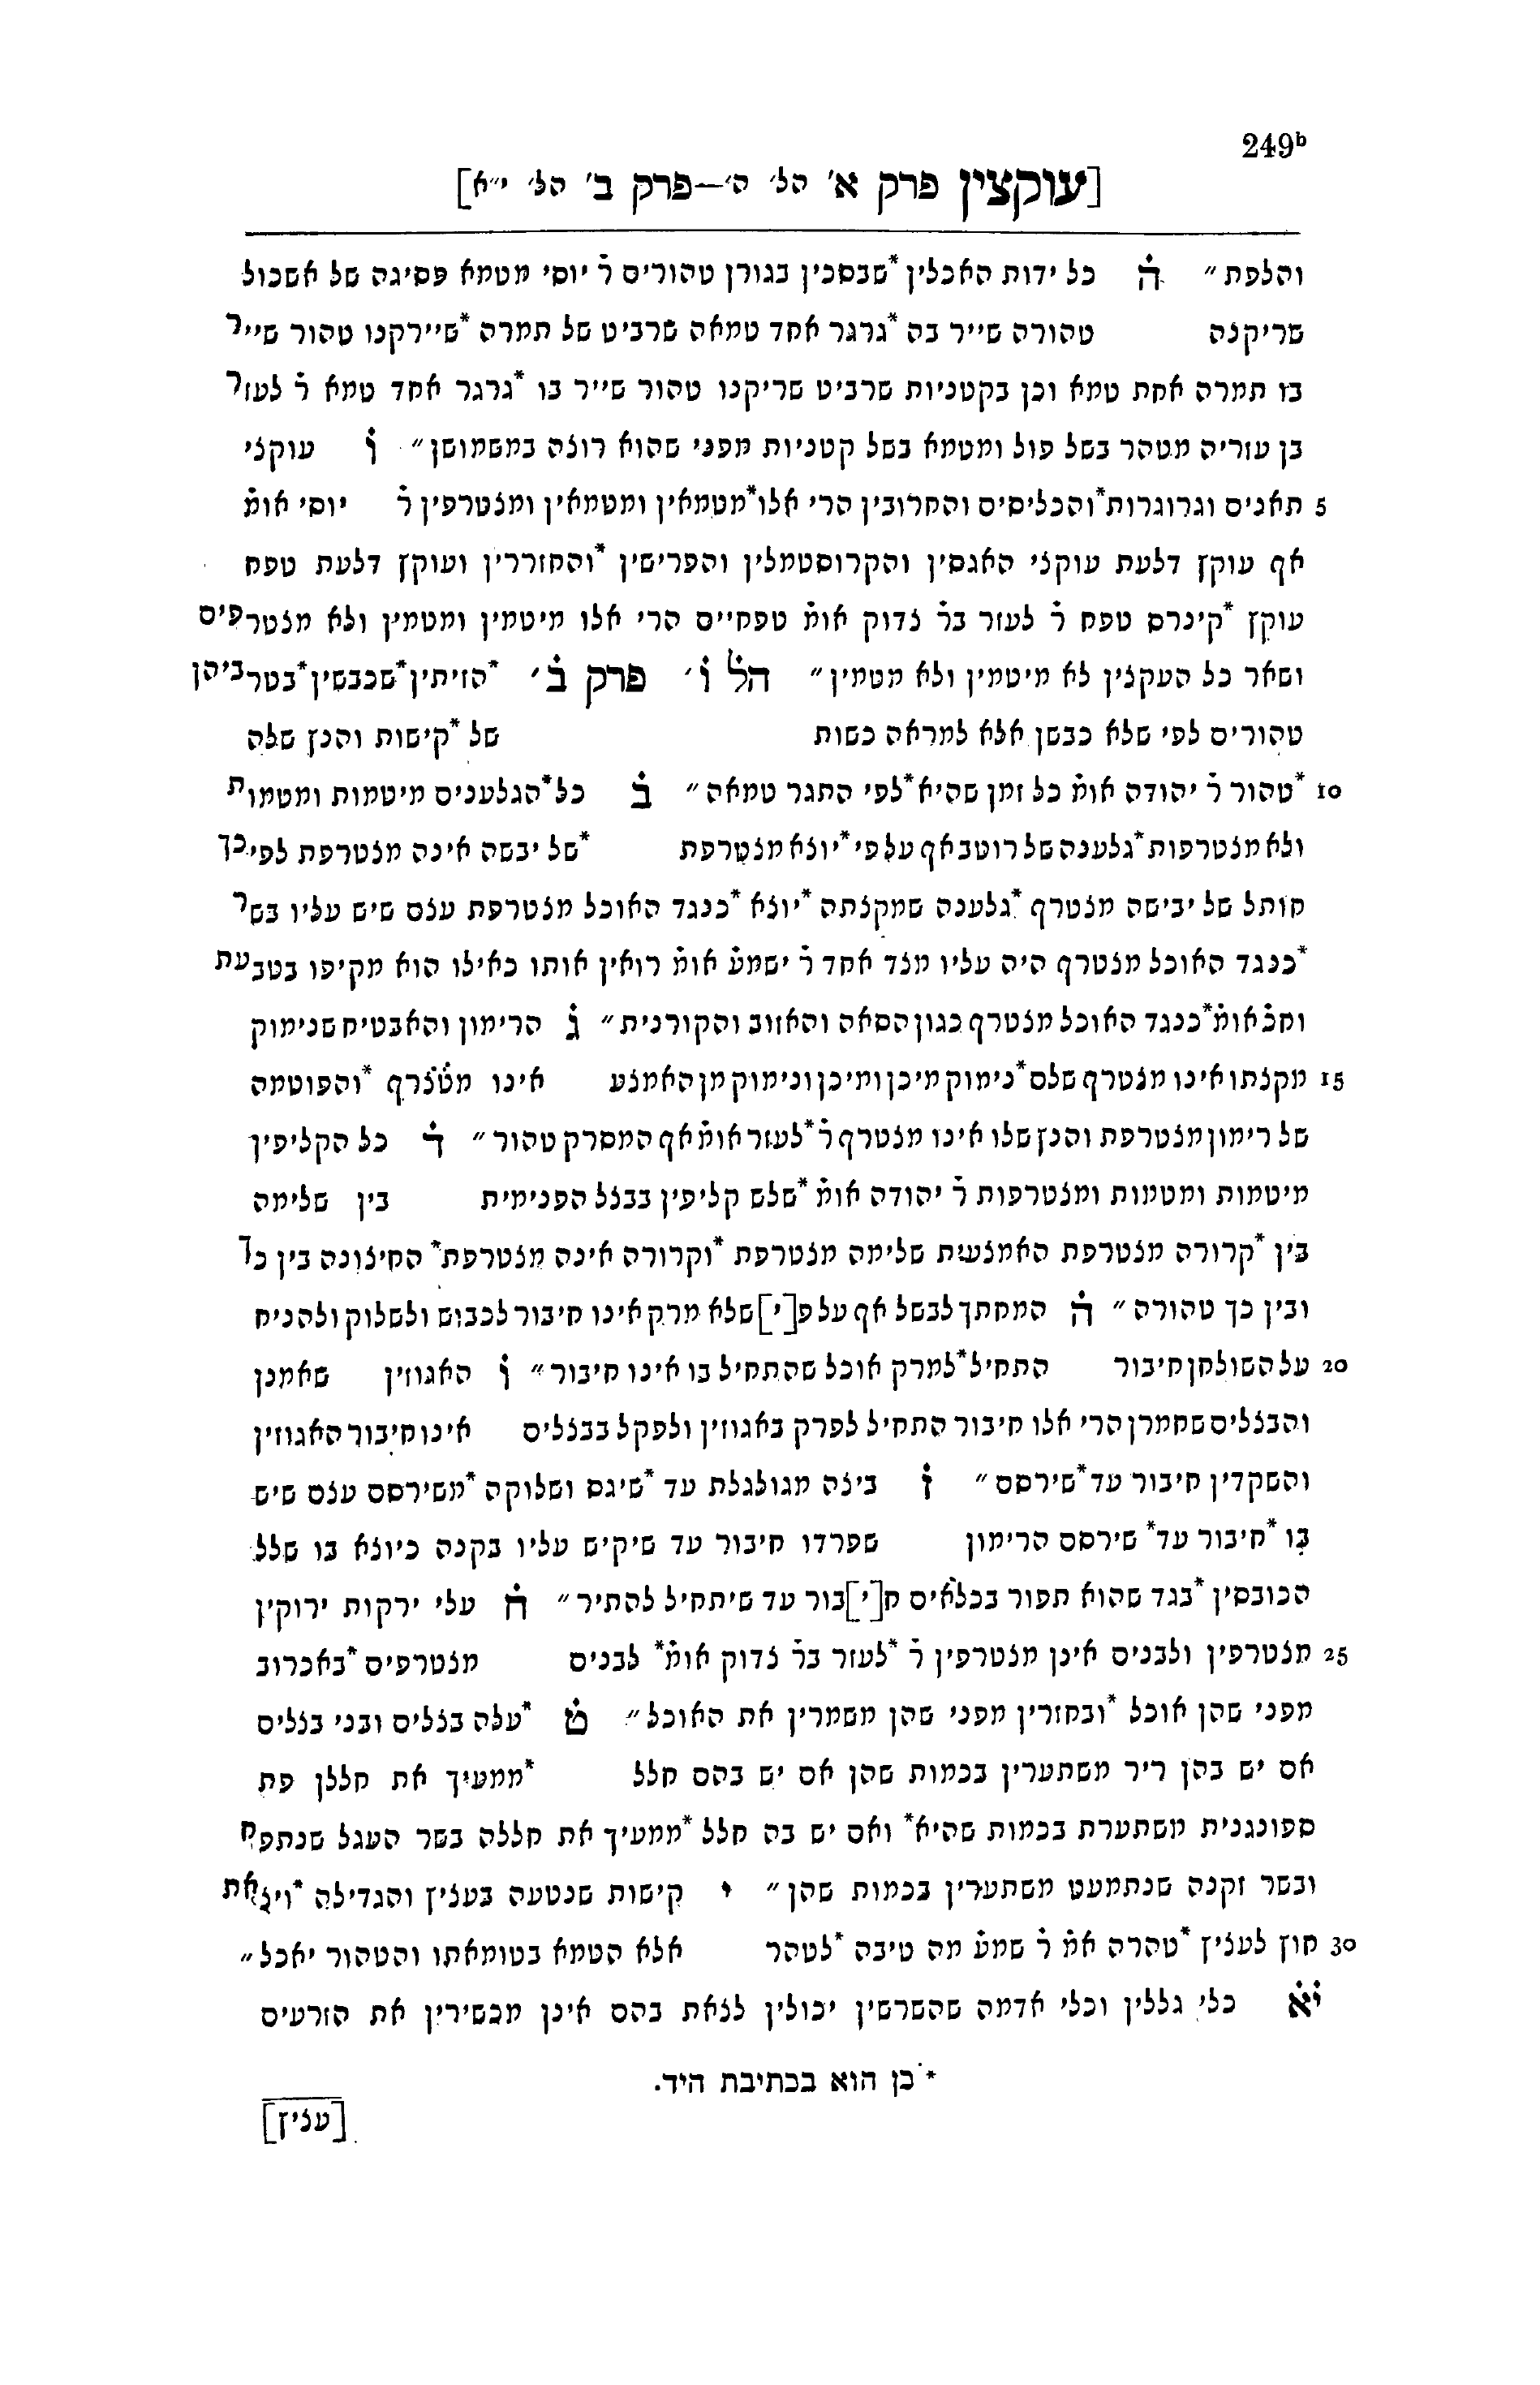 249ᵇ
[עוקצין פרק א' הל' ה'—פרק ב' הל' י״א]
והלפת ״ הׄ כל ידות האכלין *שבסכין בגורן טהורים ר̇ יוסי מטמא פסיגה של אשכול
שריקנה טהורה שייר בה *גרגר אחד טמאה שרביט של תמרה *שיירקנו טהור שייר
בו תמרה אחת טמא וכן בקטניות שרביט שריקנו טהור שייר בו *גרגר אחד טמא ר̇ לעזר
בן עזריה מטהר בשל פול ומטמא בשל קטניות מפני שהוא רוצה במשמושן ״ וׄ עוקצי
5 תאנים וגרוגרות *והכליסים והחרובין הרי אלו *מטמאין ומטמאין ומצטרפין ר̇ יוסי אומ̇
אף עוקץ דלעת עוקצי האגסין והקרוסטמלין והפרישין *והחזררין ועוקץ דלעת טפח
עוקץ *קינרס טפח ר̇ לעזר בר̇ צדוק אומ̇ טפחיים הרי אלו מיטמין ומטמין ולא מצטרפים
ושאר כל העקצין לא מיטמין ולא מטמין ״ הל̇ וׄ' פרק בׄ' *הזיתין *שכבשין *בטרביהן
טהורים לפי שלא כבשן אלא למראה כשות של *קישות והנץ שלה
10 *טהור ר̇ יהודה אומ̇ כל זמן שהיא *לפי התגר טמאה ״ בׄ כל *הגלענים מיטמות ומטמות
ולא מצטרפות *גלענה של רוטב אף על פי *יוצא מצטרפת *של יבשה אינה מצטרפת לפיכך
חותל של יבישה מצטרף *גלענה שמקצתה *יוצא *כנגד האוכל מצטרפת עצם שיש עליו בשר
*כנגד האוכל מצטרף היה עליו מצד אחד ר̇ ישמע̇ אומ̇ רואין אותו כאילו הוא מקיפו בטבעת
וחכ̇ אומ̇ *כנגד האוכל מצטרף כגון הסאה והאזוב והקורנית ״ גׄ הרימון והאבטיח שנימוק
15 מקצתו אינו מצטרף שלם *נימוק מיכן ומיכן ונימוק מן האמצע אינו מטׄצׄרף *והפוטמה
של רימון מצטרפת והנץ שלו אינו מצטרף ר̇ *לעזר אומ̇ אף המסרק טהור ״ דׄ כל הקליפין
מיטמות ומטמות ומצטרפות ר̇ יהודה אומ̇ *שלש קליפין בבצל הפנימית בין שלימה
בין *קרורה מצטרפת האמצעית שלימה מצטרפת *וקרורה אינה מצטרפת *החיצונה בין כך
ובין כך טהורה ״ הׄ המחתך לבשל אף על פ[י] שלא מרק אינו חיבור לכבוש ולשלוק ולהניח
20 על השולחן חיבור התחיל *למרק אוכל שהתחיל בו אינו חיבור ״ וׄ האגוזין שאמנן
והבצלים שחמרן הרי אלו חיבור התחיל לפרק באגוזין ולפקל בבצלים אינו חיבור האגוזין
והשקדין חיבור עד *שירסם ״ זׄ ביצה מגולגלת עד *שיגס ושלוקה *משירסם עצם שיש
בו *חיבור עד *שירסם הרימון שפרדו חיבור עד שיקיש עליו בקנה כיוצא בו שלל
הכובסין *בגד שהוא תפור בכלאים ח[י]בור עד שיתחיל להתיר ״ חׄ עלי ירקות ירוקין
25 מצטרפין ולבנים אינן מצטרפין ר̇ *לעזר בר̇ צדוק אומ̇ *לבנים מצטרפים *באכרוב
מפני שהן אוכל *ובחזרין מפני שהן משמרין את האוכל ״ טׄ *עלה בצלים ובני בצלים
אם יש בהן ריר משתערין בכמות שהן אם יש בהם חלל *ממעיך את חללן פת
ספונגנית משתערת בכמות שהיא *ואם יש בה חלל *ממעיך את חללה בשר העגל שנתפח
ובשר זקנה שנתמעט משתערין בכמות שהן ״ יׄ קישות שנטעה בעציץ והגדילה *ויצאת
30 חוץ לעציץ *טהרה אמ̇ ר̇ שמע̇ מה טיבה *לטהר אלא הטמא בטומאתו והטהור יאכל ״
יׄאׄ כלי גללין וכלי אדמה שהשרשין יכולין לצאת בהם אינן מכשירין את הזרעים
* כן הוא בכתיבת היד.
[עציץ]